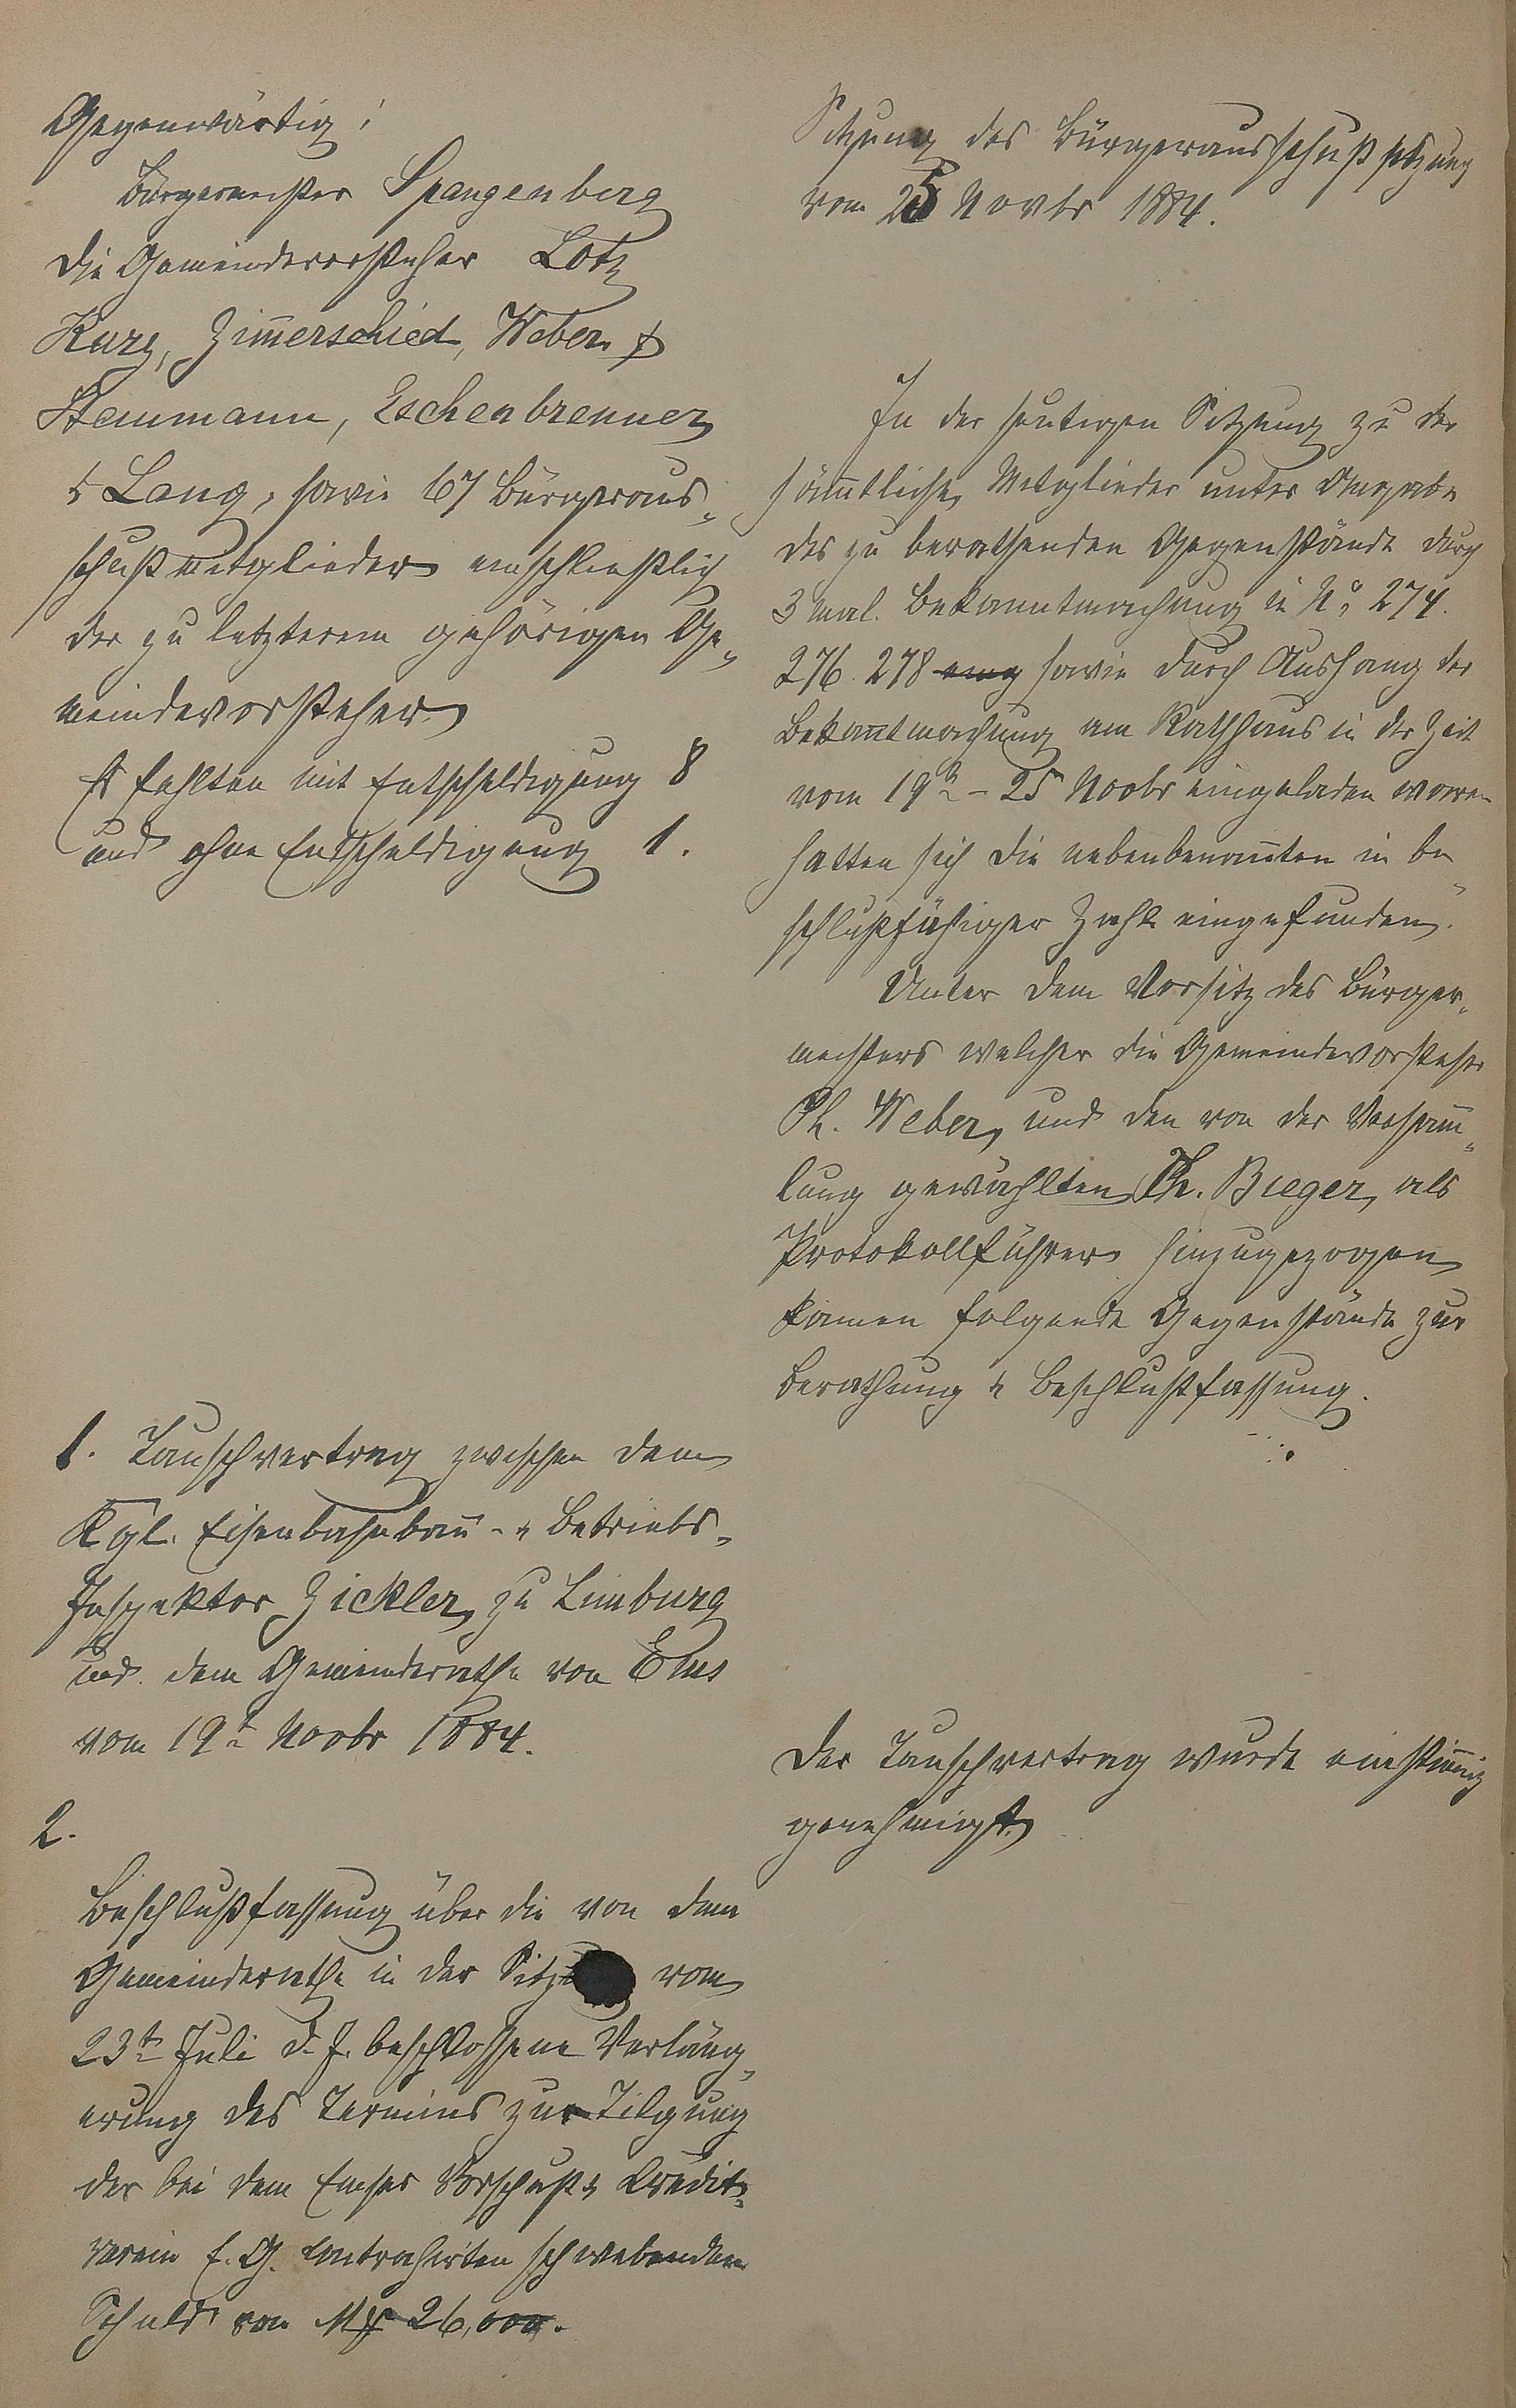 Gegenwärtig:
Bürgermeister Spangenberg
die Gemeindevorsteher Lotz
Kurz, Zim̄erschied, Weber
Stemmann, Eschenbrenner
& Lang, sowie 67 Bürgeraus-
schußmitglieder einschließlich
der zu letzterem gehörigen Ge-
meindevorsteher
Es fehlten mit Entschuldigung 8
und ohne Entschuldigung 1.
1. Tauschvertrag zwischen dem
Kgl. Eisenbahnbau- & Betriebs-
Inspektor Zickler zu Limburg
und dem Gemeinderathe von Ems
vom 19t Novbr 1884.
2.
Beschlußfassung über die von dem
Gemeinderathe in der vom
23t Juli d. J. beschlossene Verläng-
erung des Termins zur Tilgung
der bei dem Emser Vorschuß & Credit-
verein E. G. contrahirten schwebenden
Schuld von 26,000.
Sitzung des Bürgerausschußsitzung
vom 25 Novbr 1884.
In der heutigen Sitzung zu der
säm̄tliche Mitglieder unter Angabe
des zu berathenden Gegenstände durch
3 mal. Bekanntmachung in No 274.
276. 278 sowie durch Aushang der
Bekan̄tmachung am Rathhaus in der Zeit
vom 19t - 25 Novbr eingeladen waren
hatten sich die nebenbenan̄ten in be-
schlußfähiger Zahl eingefunden.
Unter dem Vorsitz des Bürger-
meisters welcher die Gemeindevorsteher
Ph. Weber, und den von der Versam̄-
lung gewählten Ph. Bieger, als
Protokollführer hinzugezogen
kamen folgende Gegenstände zur
Berathung & Beschlußfassung.
Der Tauschvertrag wurde einstim̄ig
genehmigt.